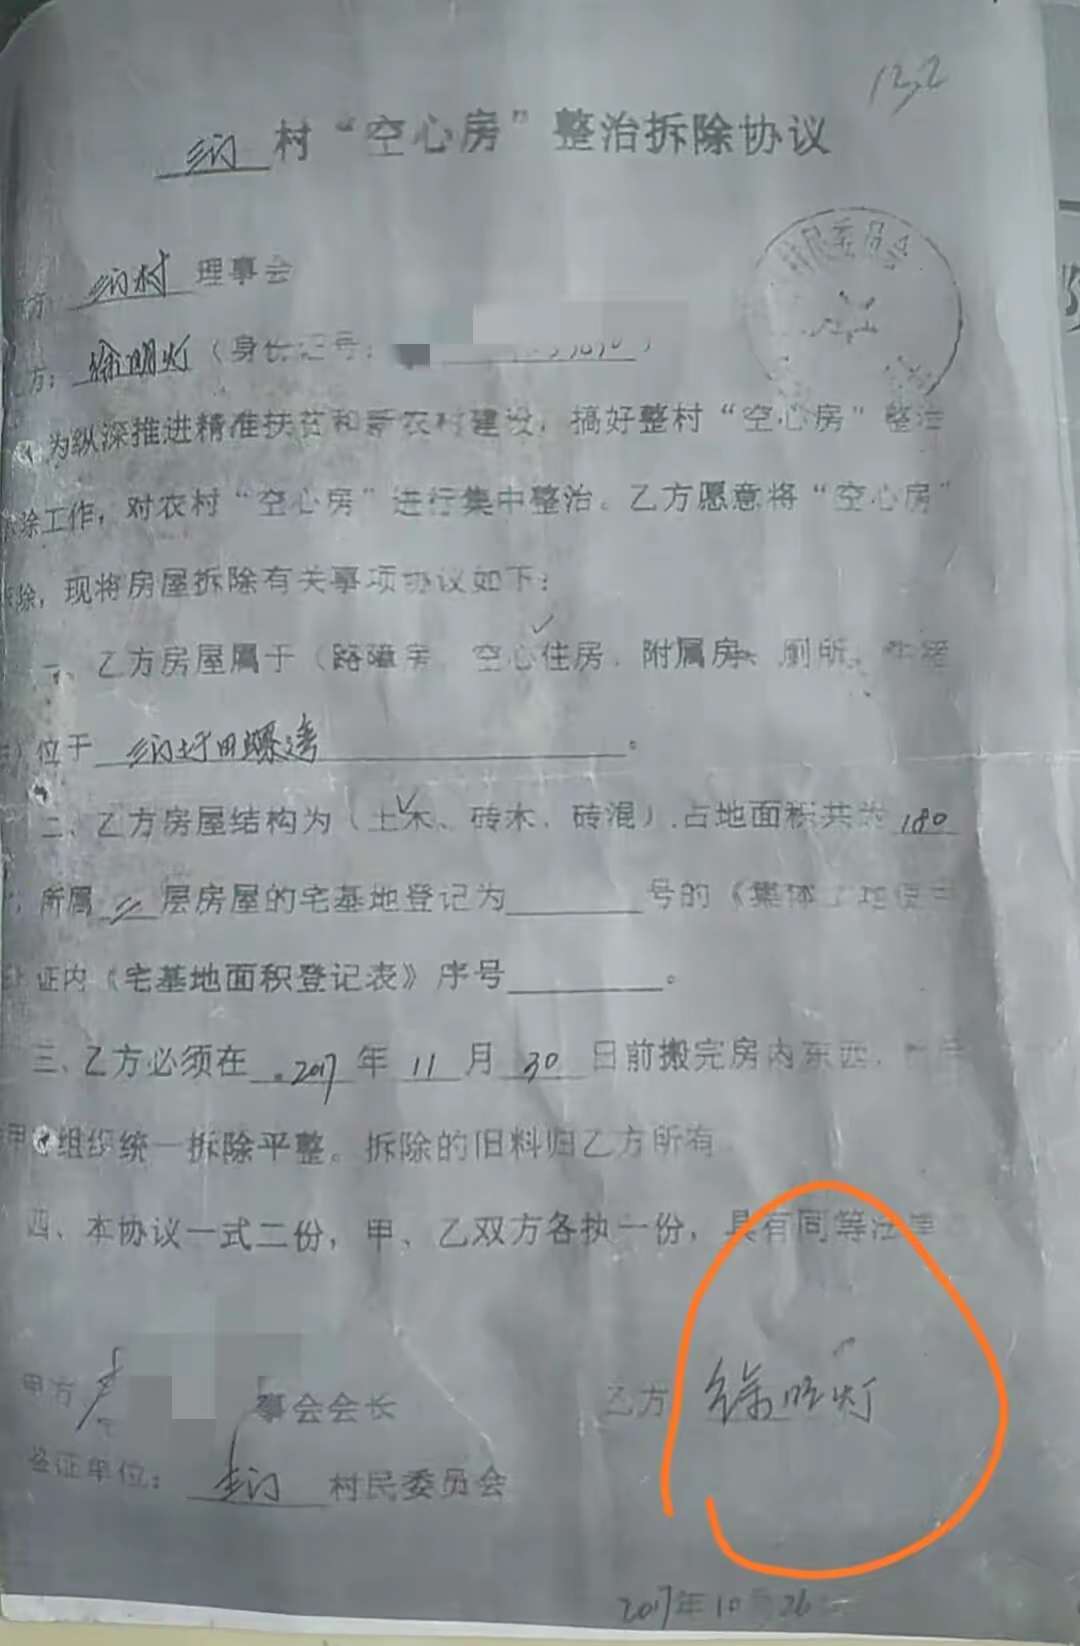 12,2
村“空心房”整治拆除协议
村民委员会
方: 村 理事会
方: 徐明灯 (身 号:
为纵深推进精准扶贫和新农村建设,搞好整村“空心房”整治
除工作,对农村“空心房”进行集中整治。乙方愿意将“空心房”
除,现将房屋拆除有关事项协议如下:
一、乙方房屋属于(路障房、空心住房、附属房、厕所、
位于 。
二、乙方房屋结构为(土木、砖木、砖混),占地面积共为 180
所属 层房屋的宅基地登记为 号的《集体土地使用
证内《宅基地面积登记表》序号 。
三、乙方必须在 2017 年 11 月 30 日前搬完房内东西,
甲 组织统一拆除平整。拆除的旧料归乙方所有
四、本协议一式二份,甲、乙双方各执一份,具有同等法律
甲方 事会会长 乙方 徐明灯
签证单位: 村民委员会
2017年10月26